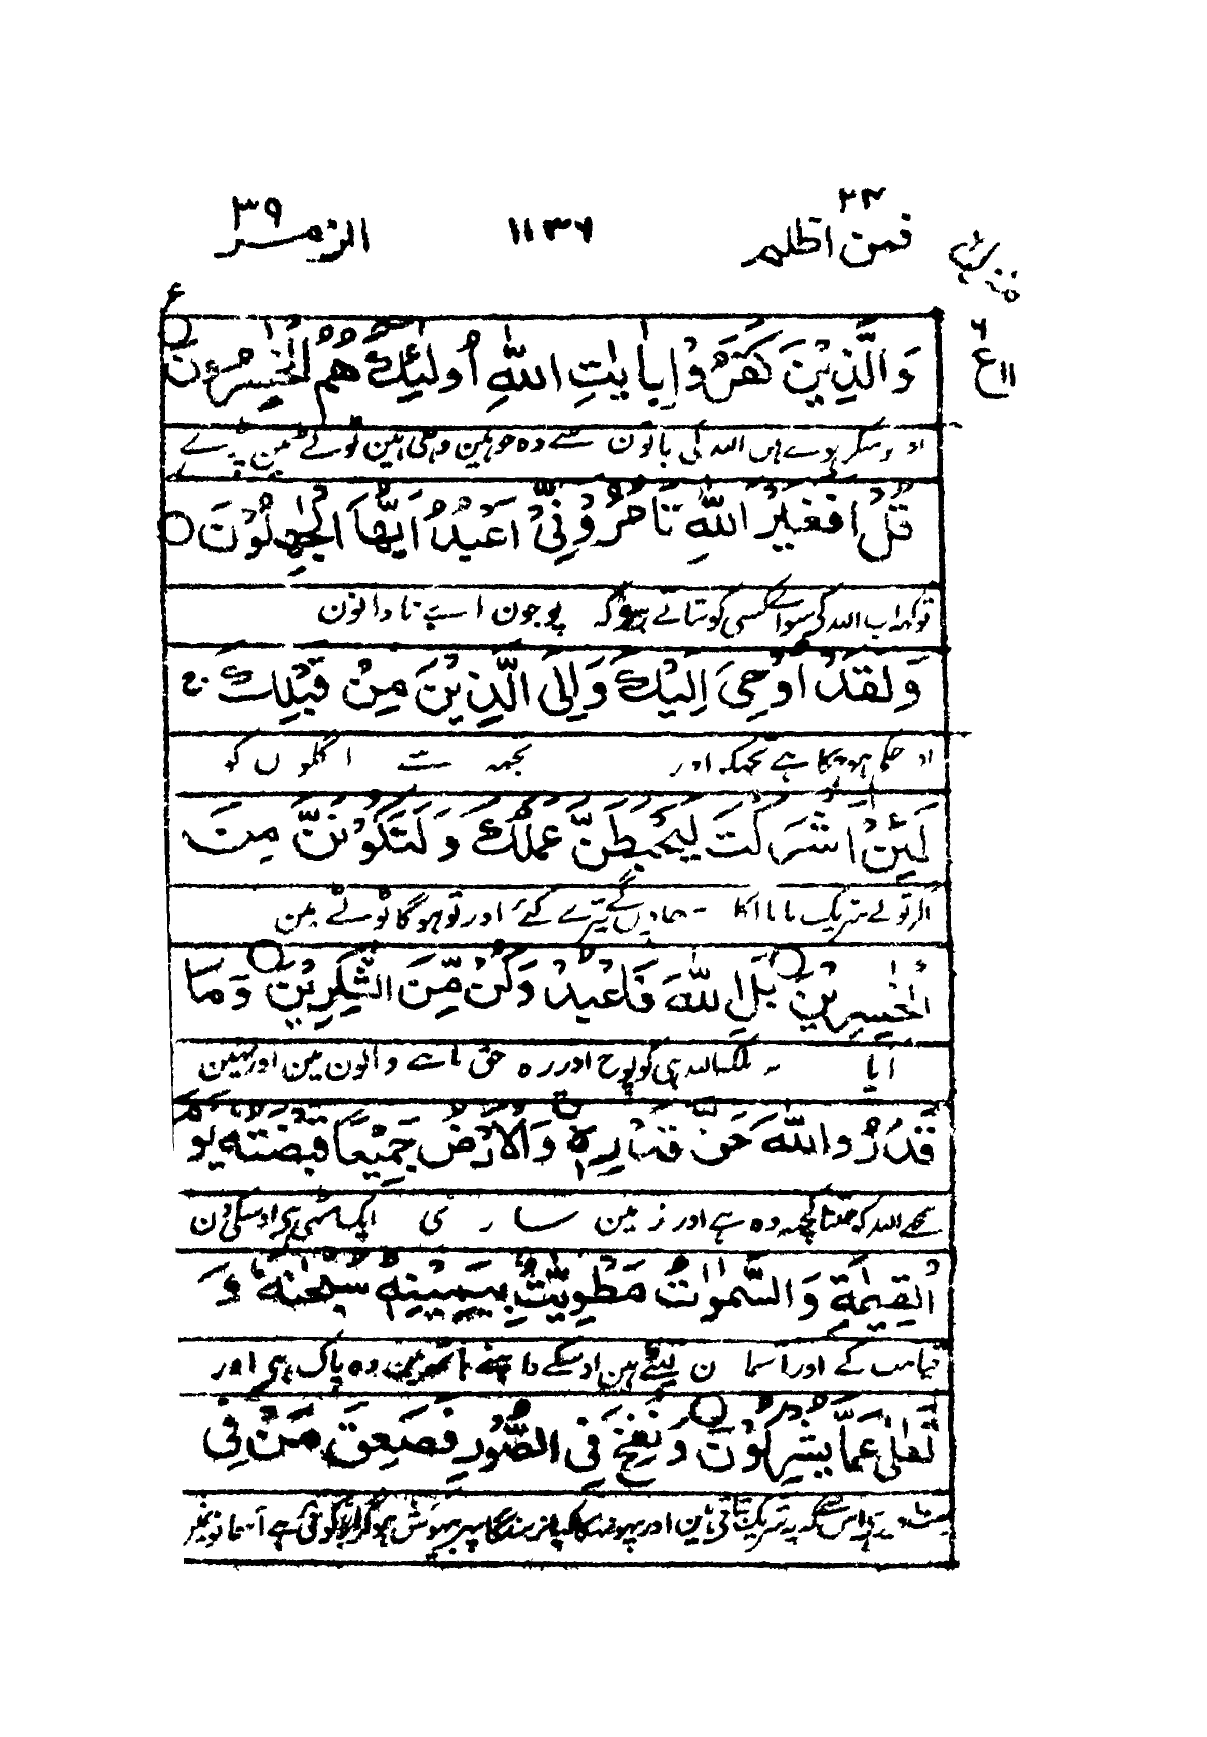 فمن اظلم ۲۴ ۱۱۳۶ الزمر ۳۹
ع
۶
ع ۱۱
وَالَّذِيْنَ كَفَرُوْا بِاٰيٰتِ اللّٰهِ اُولٰٓئِكَ هُمُ الْخٰسِرُوْنَ
اور منکر ہوے ہیں اللہ کی باتون سے وہ جو ہین وہی ہین ٹوٹے مین پڑے
قُلْ اَفَغَيْرَ اللّٰهِ تَاْمُرُوْٓنِّيْٓ اَعْبُدُ اَيُّهَا الْجٰهِلُوْنَ
تو کہہ اب اللہ کے سوا کسی کو بتاتے ہو کہ پوجون اے نادانون
وَلَقَدْ اُوْحِيَ اِلَيْكَ وَاِلَى الَّذِيْنَ مِنْ قَبْلِكَ ج
اور حکم ہو چکا ہے تجہکو اور تجہہ سے اگلوں کو
لَئِنْ اَشْرَكْتَ لَيَحْبَطَنَّ عَمَلُكَ وَلَتَكُوْنَنَّ مِنَ
اگر تونے شریک مانا اکارت جاوینگے تیرے کئے اور تو ہوگا ٹوٹے مین
الْخٰسِرِيْنَ بَلِ اللّٰهَ فَاعْبُدْ وَكُنْ مِّنَ الشّٰكِرِيْنَ وَمَا
آیا نہ بلکہ اللہ ہی کو پوج اور رہ حق ماننے والون مین اور نہین
قَدَرُوا اللّٰهَ حَقَّ قَدْرِهٖ وَالْاَرْضُ جَمِيْعًا قَبْضَتُهٗ يَوْمَ
سمجھے اللہ کو جتنا کچہہ وہ ہے اور زمین ساری ایک مٹھی ہی اوسکی دن
الْقِيٰمَةِ وَالسَّمٰوٰتُ مَطْوِيّٰتٌۢ بِيَمِيْنِهٖ سُبْحٰنَهٗ وَ
قیامت کے اور آسمان لپٹے ہین اوسکے داہنے ہاتہہ مین وہ پاک ہی اور
تَعٰلٰى عَمَّا يُشْرِكُوْنَ وَنُفِخَ فِي الصُّوْرِ فَصَعِقَ مَنْ فِي